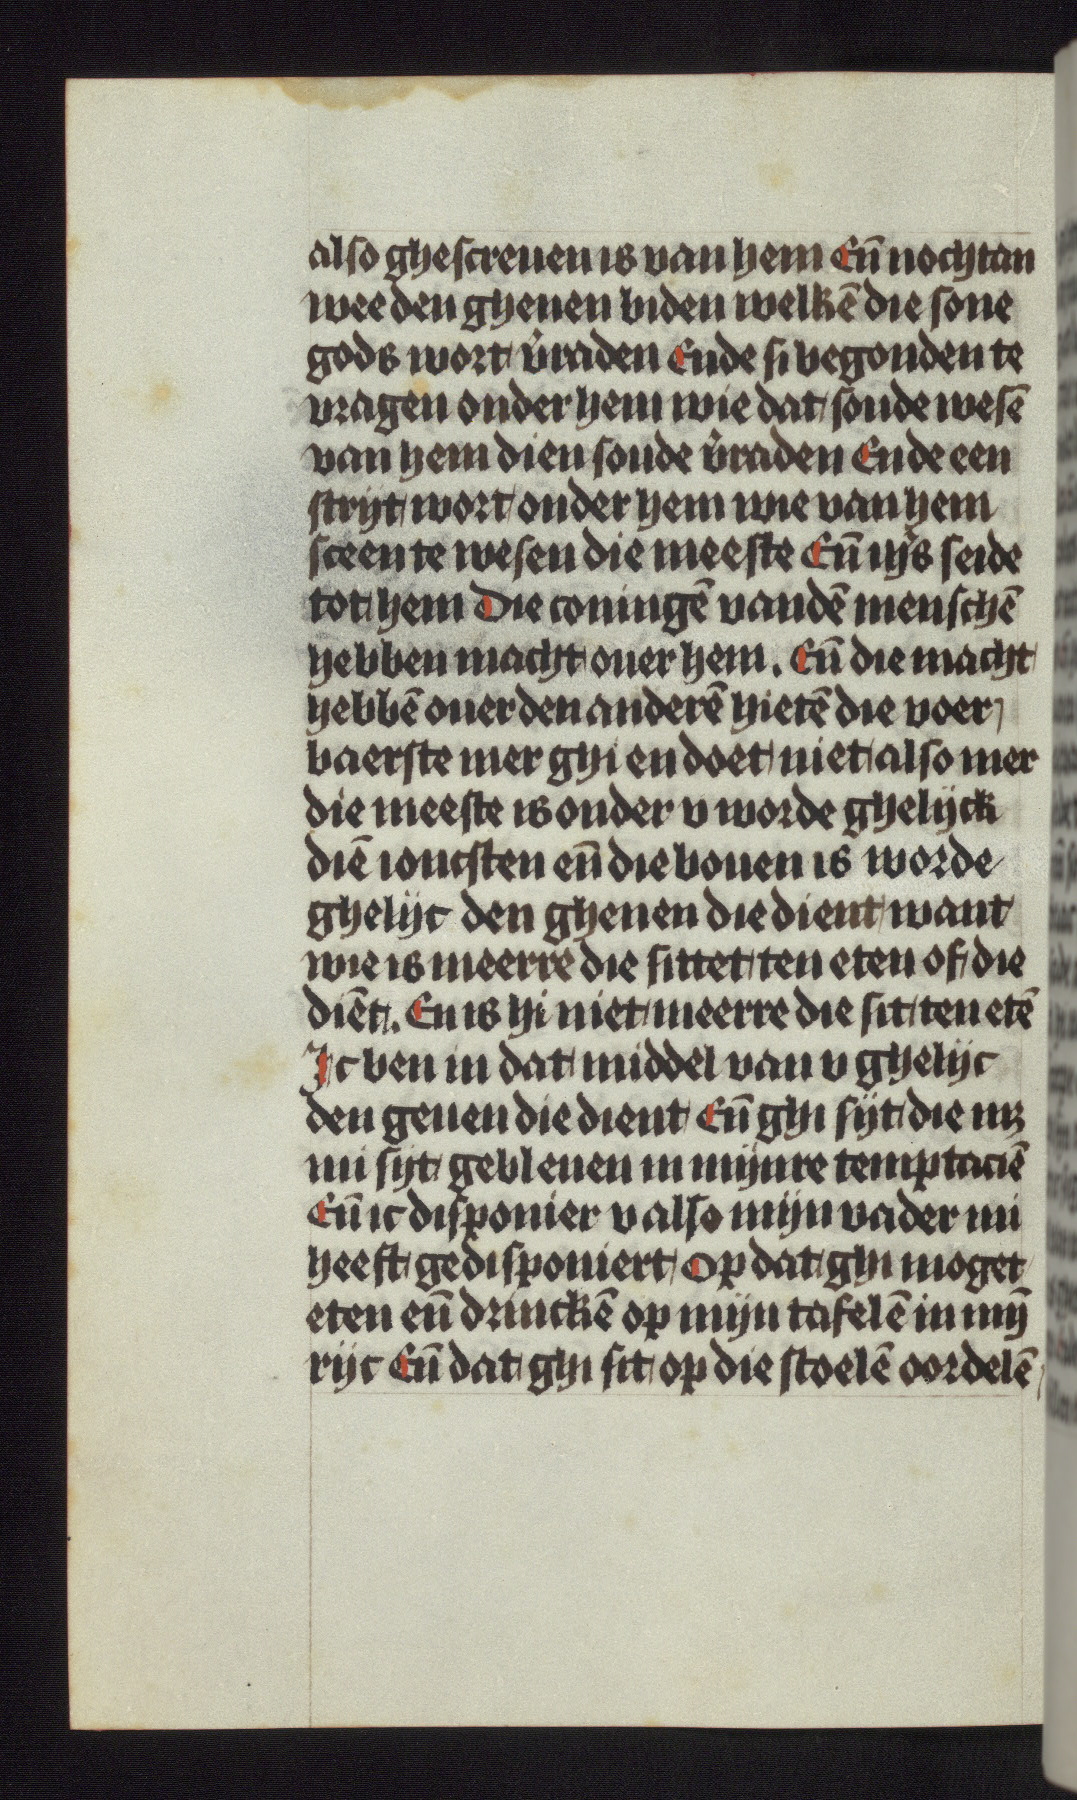 also ghescreuen is van hem Eñ nochtan
wee den ghenen biden welkē die sone
gods wort v̄raden Ende si begonden te
vragen onder hem wie dat soude wesē
van hem dien soude v̄raden Ende een
strijt wort onder hem wie van hem
sceen te wesen die meeste Eñ ih̄s seide
tot hem Die coningē vandē menschē
hebben macht ouer hem. Eñ die macht
hebbē ouer den anderē hietē die voer
baerste mer ghi en doet niet also mer
die meeste is onder v worde ghelijck
diē ioncsten eñ die bouen is worde
ghelijc den ghenen die dient want
wie is meerre die sittet ten eten of die
diēt. En is hi niet meerre die sit ten etē
Ic ben in dat middel van v ghelijc
den genen die dient Eñ ghi sijt die mꝫ
mi sijt gebleuen in mijnre temptaciē
Eñ ic disponier v also mijn vader mi
heeft gedisponiert Op dat ghi moget
eten eñ drinckē op mijn tafelē in mȳ
rijc Eñ dat ghi sit op die stoelē oordelē